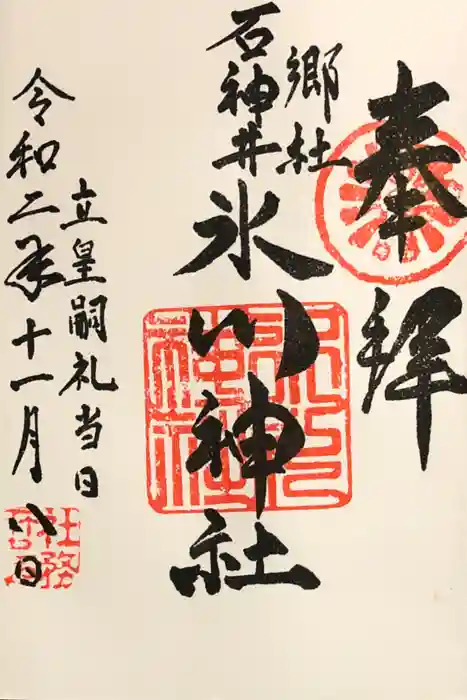 奉拝
郷社
石神井
氷川神社
立皇嗣礼当日
令和二年十一月八日
氷川神社
社務所印